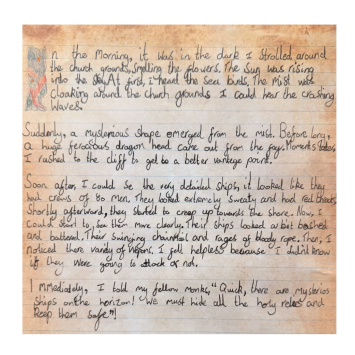 In the Morning, it was in the dark I strolled around
the church grounds, smelling the flowers. The Sun was rising
into the sky. At first, i heard the sea birds. The mist was
cloaking around the church grounds I could hear the crashing
waves.
Suddenly, a mysterious shape emerged from the mist. Before long,
a huge ferocious dragon head came out from the fog. Moments later,
I rushed to the cliff to get to a better vantage point.
Soon after, I could se the very detailed ships, it looked like they
had crews of 80 men. They looked extremely sweaty and had red
Shortly afterward, they started to creep up towards the shore. Now, i
could start to, see them more clearly. Their ships looked a bit bashed
and battered. Their swinging chainmail and rages of bloody rope. Then, I
noticed there variety of wepons. I felt helpless because I didn't know
if they were going to attack or not.
IMMediately, I told my fellow monks, "Quick, there are mysterios
ships on the horizon! We must hide all the holy relics and
Keep them safe"!